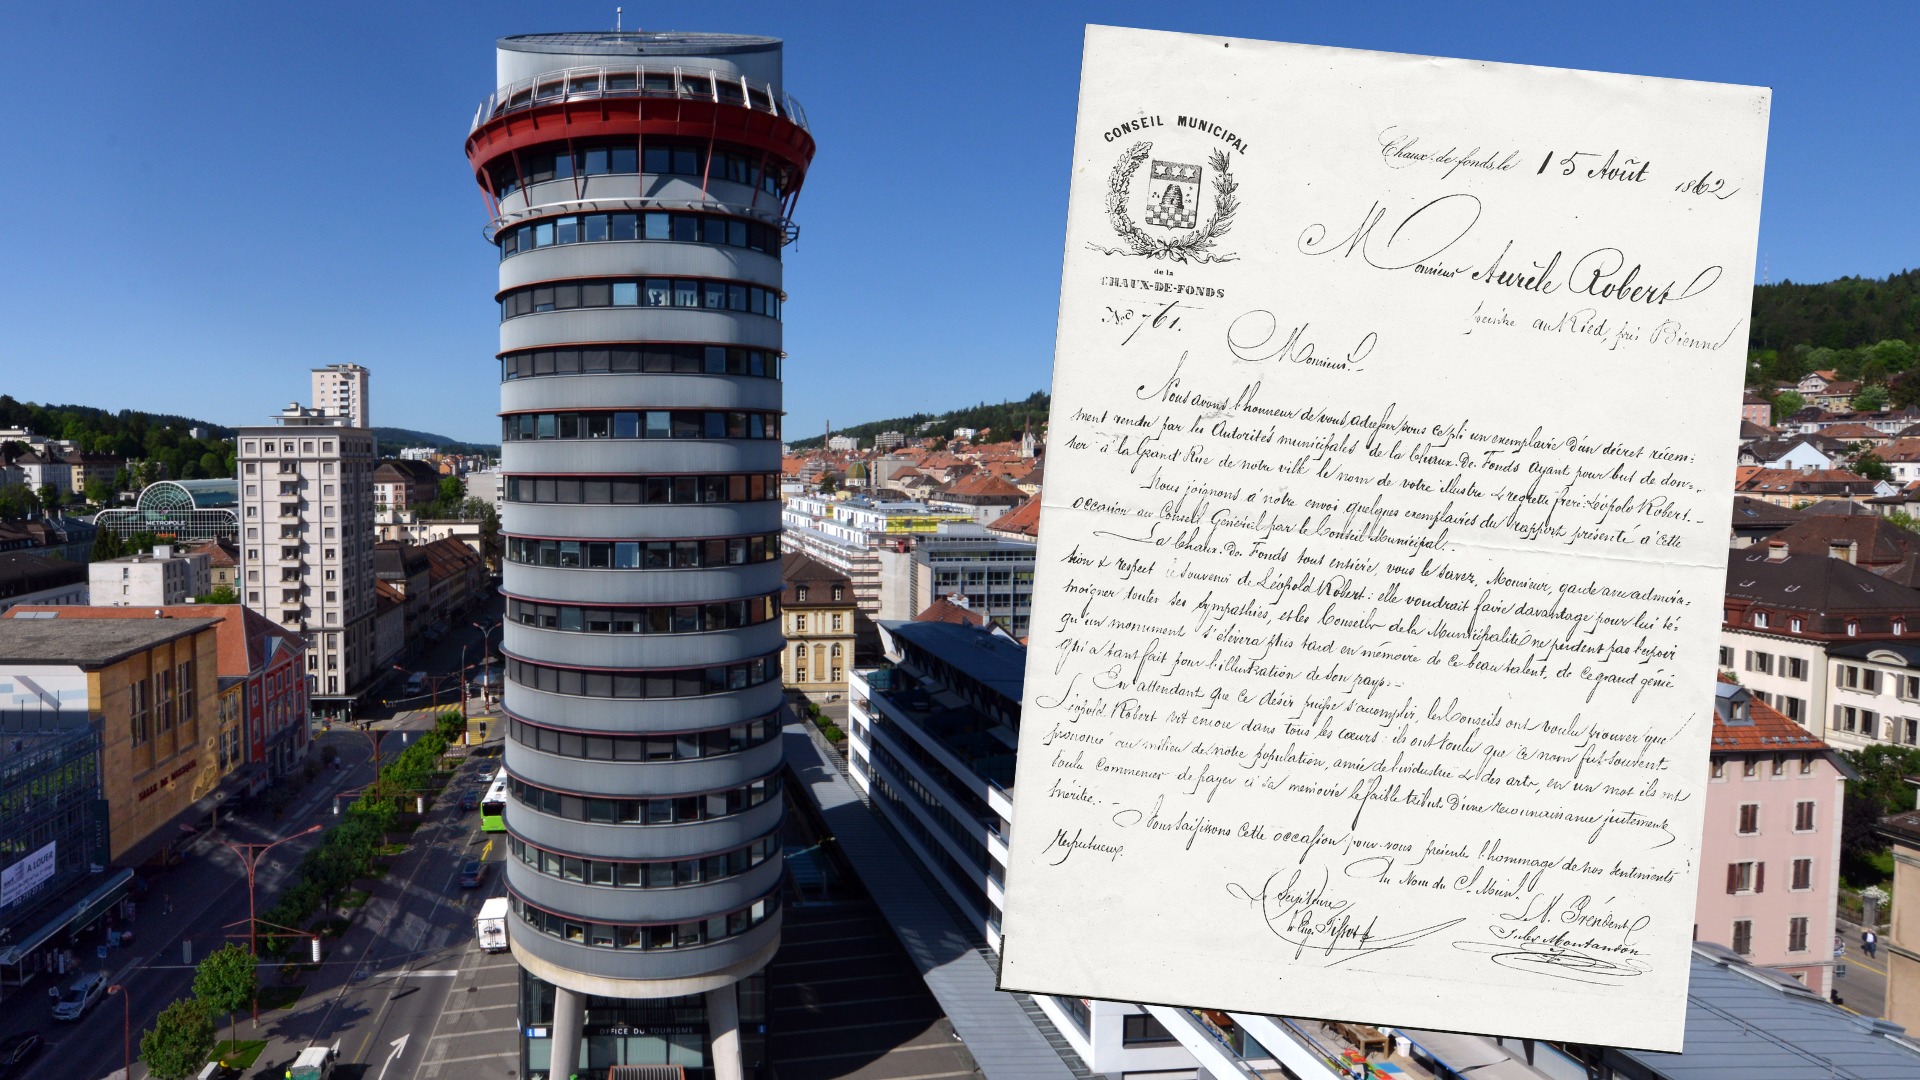 METROPOLE
SALLE DE MUSIQUE
A LOUER
OFFICE DU TOURISME
CONSEIL MUNICIPAL
de la
CHAUX-DE-FONDS
No 761.
Chaux-de-fonds, le 15 Août 1862
Monsieur Aurèle Robert
peintre au Ried, près Bienne
Monsieur!
Nous avons l'honneur de vous adresser sous ce pli un exemplaire d'un décret récem-
ment rendu par les Autorités municipales de la Chaux-De-Fonds ayant pour but de don-
ner à la Grand Rue de notre ville le nom de votre illustre & regretté frère: Léopold Robert. -
Nous joignons à notre envoi quelques exemplaires du rapport présenté à cette
occasion au Conseil Général par le Conseil Municipal. -
La Chaux-De-Fonds tout entière, vous le savez, Monsieur, garde avec admira-
tion & respect le souvenir de Léopold Robert: elle voudrait faire davantage pour lui té-
moigner toutes ses sympathies, et les Conseils de la Municipalité ne perdent pas l'espoir
qu'un monument s'élèvera plus tard en mémoire de ce beau talent, de ce grand génie
qui a tant fait pour l'illustration de son pays. -
En attendant que ce désir puisse s'accomplir, les Conseils ont voulu prouver que
Léopold Robert vit encore dans tous les cœurs: ils ont voulu que ce nom fut souvent
prononcé au milieu de notre population, amie de l'industrie & des arts, en un mot ils ont
voulu commencer de payer à sa mémoire le faible tribut d'une reconnaissance justement
méritée. -
Nous saisissons cette occasion pour vous présenter l'hommage de nos sentiments
respectueux.
Au Nom du C. Munl.
Le Secrétaire Le V. Président
Eug. Tissot Jules Montandon